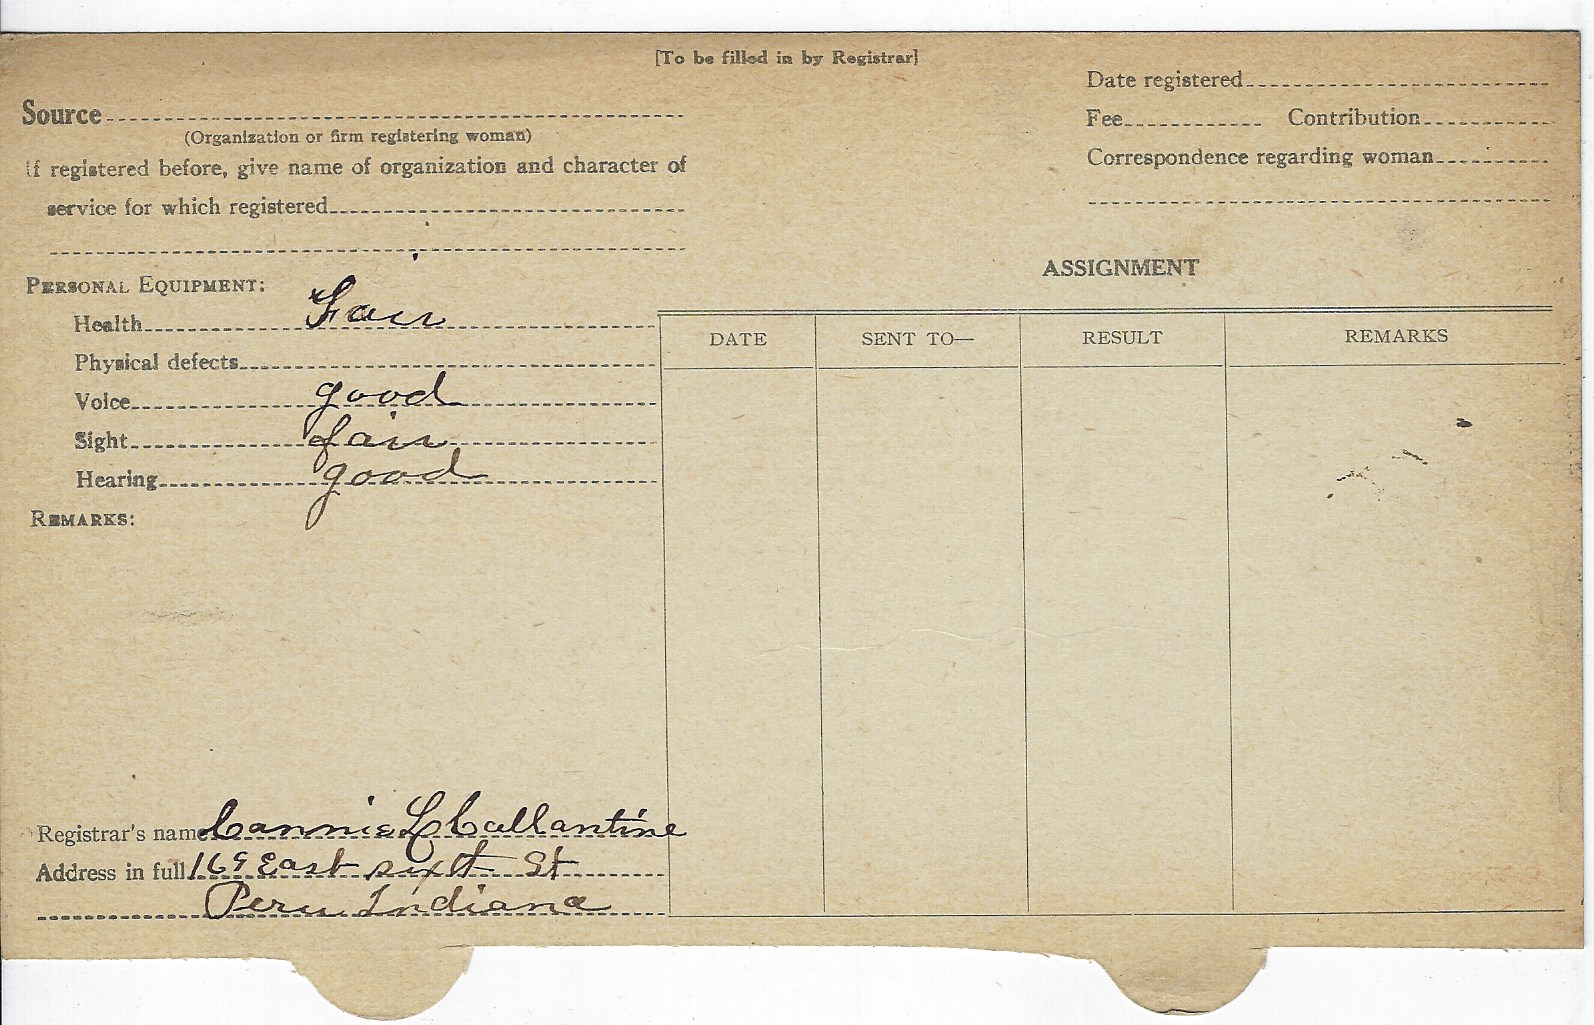 [To be filled in by Registrar]
Source
(Organization or firm registering woman)
If registered before, give name of organization and character of
service for which registered
Date registered
Fee Contribution
Correspondence regarding woman
PERSONAL EQUIPMENT:
Health Fair
Physical defects
Voice good
Sight fair
Hearing good
REMARKS:
ASSIGNMENT
DATE SENT TO— RESULT REMARKS
Registrar's name Cannie L Callantine
Address in full 169 East sixth St
Peru Indiana